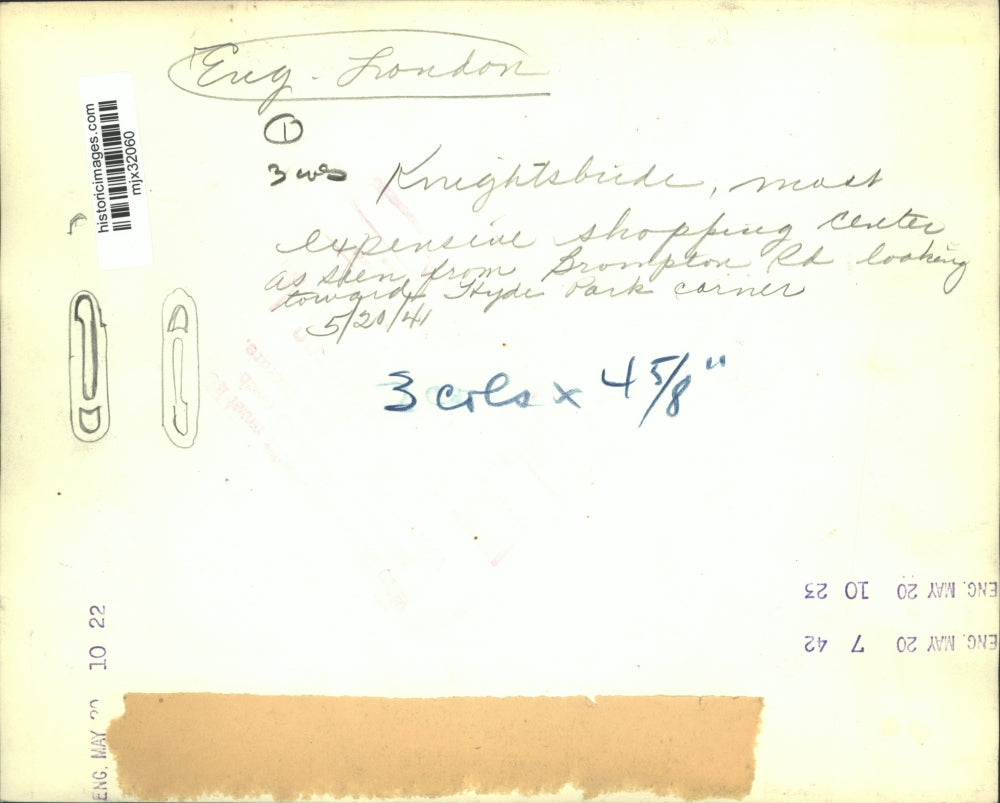 Eng. London
1
3 cols Knightsbride, most
expensive shopping center
as seen from Brompton Rd looking
toward Hyde Park corner
5/20/41
3 cols x 4 5/8"
historicimages.com
mjx32060
ENG. MAY 20 10 23
ENG. MAY 20 7 42
ENG. MAY 20 10 22